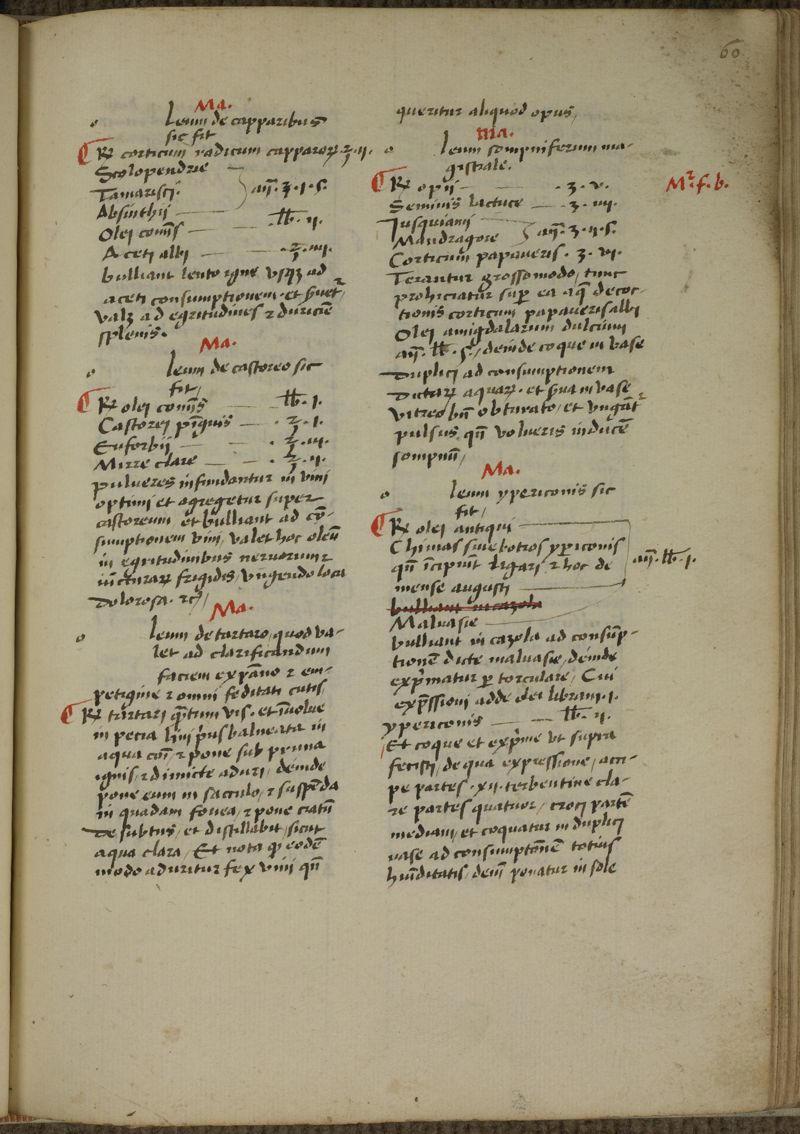 60
Ma.
o leum de capparibus
sic fit
℞ corticum radicum capparoꝝ ℥. ij.
Scolopendrie
Tamarisci.
añ. ℥. i. s.
Absinthij
Olei cōms — ℔. ij.
Aceti albi — ℥. iij.
bulliant lento igne vsqꝫ ad
aceti consumptionem. et s̄uetꝛ
valꝫ ad egritudines ⁊ duriciē
splenis.
Ma.
o leum de castoreo sic
fit/
℞ olei cōmis — ℔. j.
Castorei pīguis — ℥. j.
Euforbij — ℥. iij.
Mirre clare — ℥. ij.
pulueres infundantur in vini
optimi et agregetur super
castoreum et bulliant ad cō-
sumptionem vini, valet hoc oleū
in egritudinibus neruorum ⁊
iūcturaꝝ frigidis, vngendo loca
dolorosa. ⁊c̄/
Ma.
o leum de tartaro, quod va-
let ad clarificandum
faciem ex pāno ⁊ em-
petigine ⁊ omni feditati cutis,
℞ tartari q̄tum vis. et īuolue
in pecia lini p̄us balneata in
aqua cōi ⁊ pone sub pruna
ignis ⁊ dimicte aduri, deinde
pone eum in sacculo, ⁊ suspēda
in quadam fouea, ⁊ pone ciatū
desubtus, et distillabit, sicut
aqua clara, Et nota qꝫ eodē
modo aduritur fex vini qn̄
queritur aliquod opus,
Ma.
o leum sompniferum ma-
gistrale.
℞ opij — ℥. v.
Mꝛ. f. b.
Seminis lactuce — ℥. iij.
Jusquiami
Mandragore
añ. ℥. ij. s.
Corticum papaueris. ℥. vj.
Terantur grossomodo, tunc
prohiciatur sup̱ ea aq̄ decoc-
tionis corticum papaueris albi
Olei amigdalarum dulcium
añ. ℔. s̄, deinde coque in vase
duplici ad consumptionem
dictaꝝ aquaꝝ. et s̄ua in vase
vitreo bn̄ obturato, et vngātꝛ
pulsus, qn̄ volueris inducē
sompnū,
Ma.
o leum ypericonis sic
fit,
℞ olei antiqui
Chimas siue botros yp̱iconis
qn̄ īcipiūt ligari ⁊ hoc de
añ. ℔. j.
mense augusti
bulliant in cazola
Maluasie
bulliant in cazola ad consūp-
tionē dicte maluasie, deinde
exp̄matur p̱ torculare, Cui
exp̄ssioni adde olei libram. j.
ypericonis — ℔. ij.
Et coque et exp̄me vt supra
fecisti, de qua expressione, acci-
pe partes. xij. terbentine cla-
re partes quatuor, croci partē
mediam, et coquatur in duplici
vase ad consumptōnē totius
hūiditatis, demū ponatur in sole